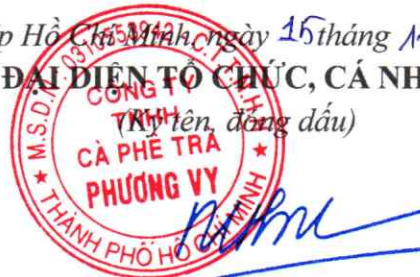 p Hồ Chí Minh, ngày 15 tháng
ĐẠI DIỆN TỔ CHỨC, CÁ NH
(Ký tên, đóng dấu)
CÔNG TY
TNHH
CÀ PHÊ TRÀ
PHƯƠNG VY
★ THÀNH PHỐ HỒ CHÍ MINH ★